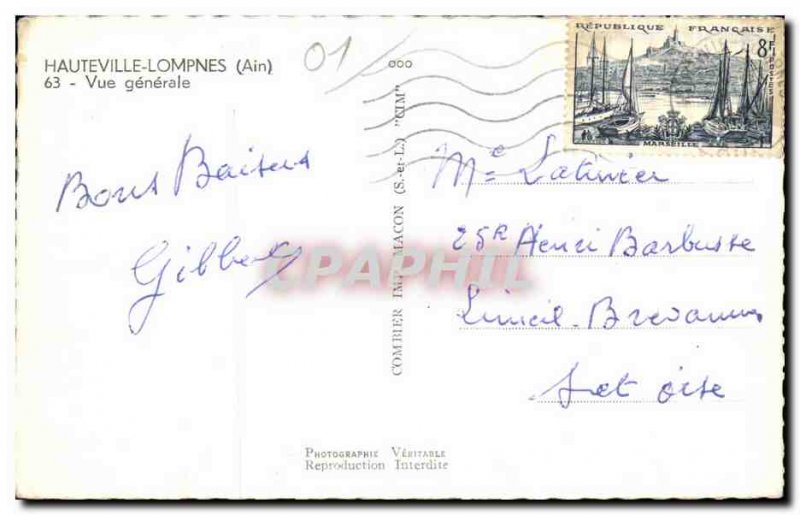 HAUTEVILLE-LOMPNES (Ain)
63 - Vue générale
01
ooo
RÉPUBLIQUE FRANÇAISE
8F
POSTES
MARSEILLE
Bons Baisers
Gilbert
COMBIER IMP. MACON (S.-et-L.) "CIM"
CPAPHIL
Me Latinier
25 R Henri Barbusse
Limeil-Brevannes
S et oise
PHOTOGRAPHIE VÉRITABLE
Reproduction Interdite